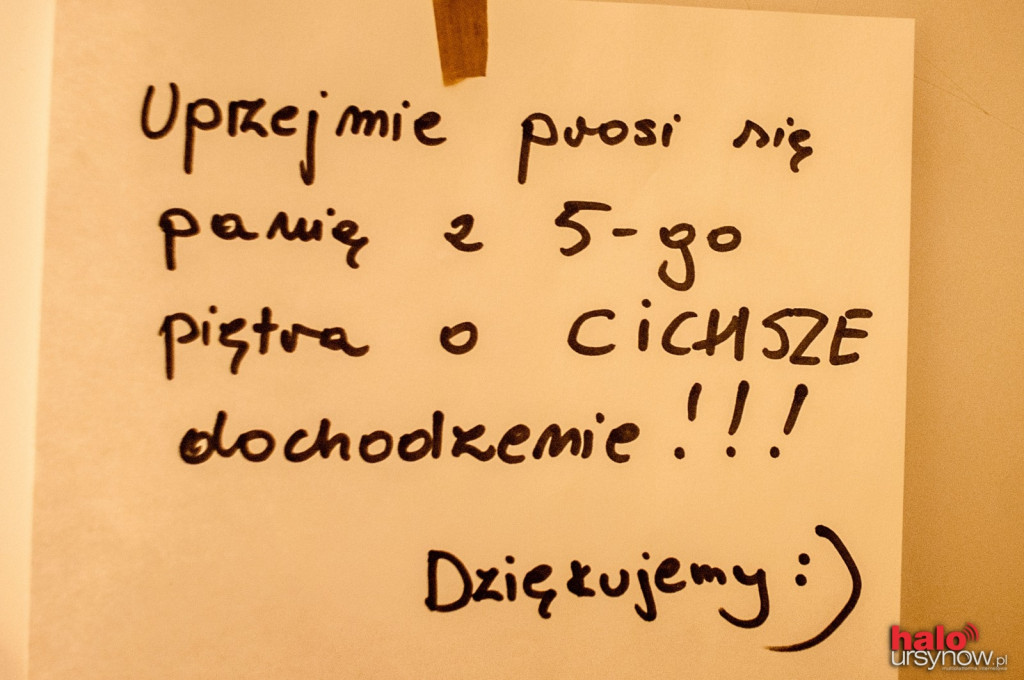 Uprzejmie prosi się
panią z 5-go
piętra o CiCHSZE
dochodzenie!!!
Dziękujemy :)
halo
ursynow.pl